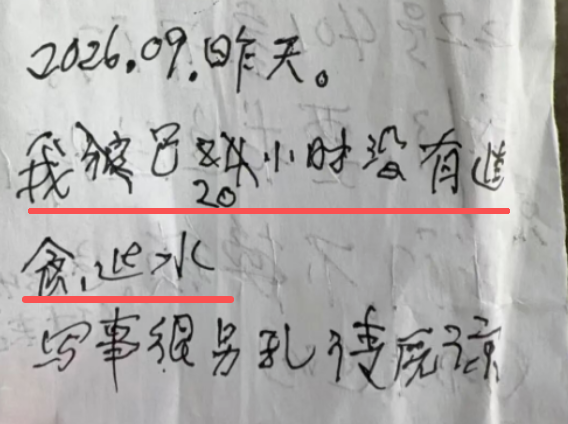 2026.09.昨天。
我已小时没有进
20
食进水
写事很另乱请原谅